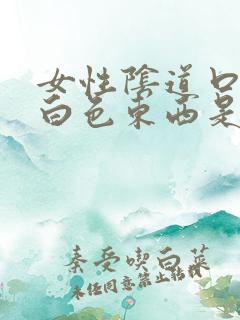 女性陰道口
白色東西是
秦受喫白菜
未经同意禁止转载